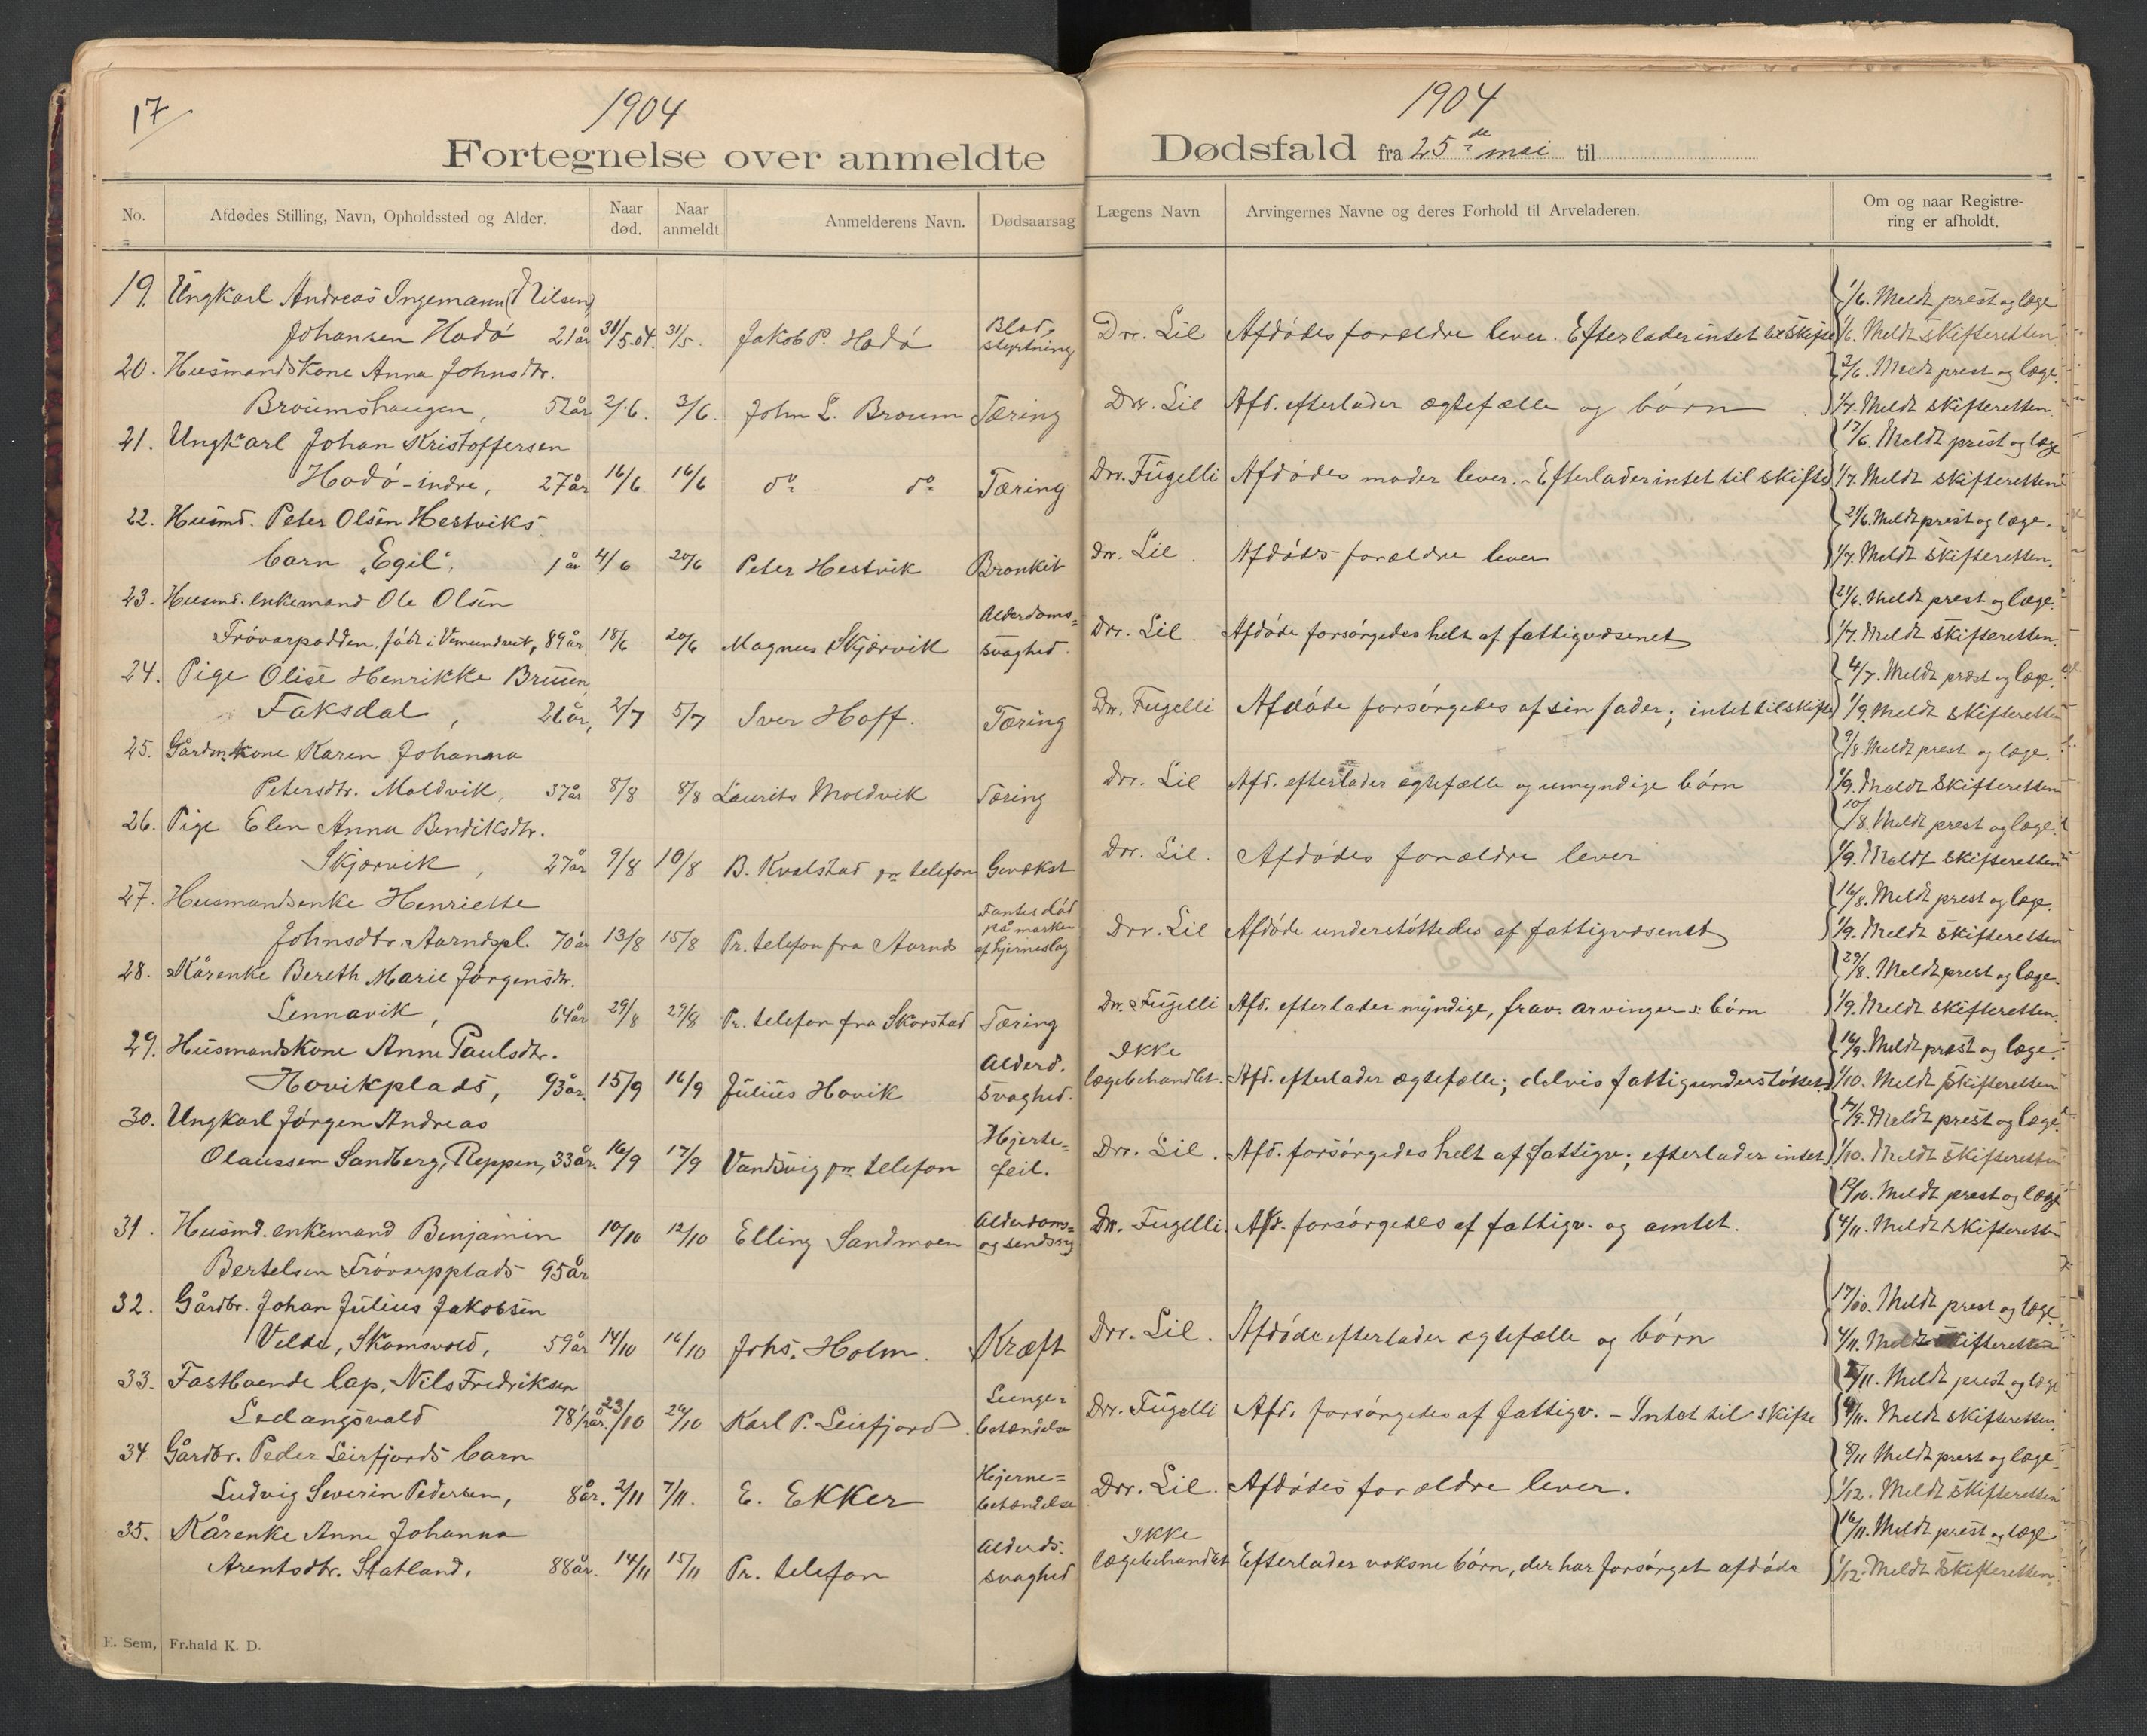 17
1904
Fortegnelse over anmeldte
No. Afdødes Stilling, Navn, Opholdssted og Alder. Naar død. Naar anmeldt Anmelderens Navn. Dødsaarsag
19. Ungkarl Andreas Ingemann (Nilsen)
Johansen Hadø 21 år 31/5.04. 31/5. Jakob P. Hadø Blodstyrtning
20. Husmandskone Anna Johnsdtr.
Broumshaugen, 52 år 2/6. 3/6. John L. Broum Tæring
21. Ungkarl Johan Kristoffersen
Hadø-indre, 27 år 16/6 16/6 do do Tæring
22. Husmd. Peter Olsen Hestviks
barn „Egil“, 1 år 4/6 20/6 Peter Hestvik Bronkit
23. Husmd. enkemand Ole Olsen
Frövarpodden, født i Vemundvik, 89 år 18/6 20/6 Magnus Skjærvik Alderdoms= svaghed.
24. Pige Olise Henrikke Bruun,
Faksdal, 26 år, 2/7 5/7 Iver Hoff. Tæring
25. Gårdm.kone Karen Johanna
Petersdtr. Moldvik, 37 år 8/8 8/8 Laurits Moldvik Tæring
26. Pige Elen Anna Bendiksdtr.
Skjærvik, 27 år 9/8 10/8 B. Kvalstad pr telefon Gevækst
27. Husmandsenke Henriette
Johnsdtr. Aarndspl. 70 år 13/8 15/8 Pr. telefon fra Aarnds Fantes død på marken af hjerneslag
28. Kårenke Bereth Marie Jørgensdtr.
Lennavik, 64 år 29/8 29/8 Pr. telefon fra Skorstad Tæring
29. Husmandskone Anne Paulsdtr.
Hovikplads, 93 år. 15/9 16/9 Julius Hovik Alderd. svaghed.
30. Ungkarl Jørgen Andreas
Olaussen Sandberg, Reppen, 33 år. 16/9 17/9 Vandsvig pr. telefon Hjerte= feil.
31. Husmd. enkemand Benjamin 10/10 12/10 Elling Sandmoen Alderdoms=
Bertelsen Frövarpplads 95 år
32. Gårdbr. Johan Julius Jakobsen
Velde, Skomsvold, 59 år 14/10 16/10 Johs. Holm. Kræft
33. Fastboende lap, Nils Fredriksen
78 1/2 år. 23/10 26/10 Karl P. Leirfjord Lunge= betændelse
34 Gårdbr. Peder Leirfjords barn
Ludvig Severin Pedersen, 8 år. 2/11 7/11. E. Ekker Hjerne= betændelse
35. Kårenke Anne Johanna
Arentsdtr. Statland, 88 år. 14/11 15/11 Pr. telefon Alderds. svaghed
E. Sem, Fr.hald K. D.
1904
Dødsfald fra 25de mai til
Lægens Navn Arvingernes Navne og deres Forhold til Arveladeren. Om og naar Registrering er afholdt.
1/6. Meldt prest og læge
Drr. Lil Afdødes forældre lever. Efterlader intet til skifte 1/6. Meldt skifteretten
3/6. Meldt prest og læge.
Drr. Lil Afd. efterlader ægtefælle og børn 1/7. Meldt skifteretten.
17/6. Meldt prest og læge
Drr. Fugelli Afdødes moder lever. - Efterlader intet til skifte 1/7. Meldt skifteretten
21/6. Meldt prest og læge.
Drr. Lil. Afdødes forældre lever 1/7. Meldt skifteretten.
21/6. Meldt prest og læge.
Drr. Lil. Afdøde forsørgedes helt af fattigvæsenet 1/7. Meldt skifteretten.
4/7. Meldt præst og læge.
Dr. Fugelli Afdøde forsørgedes af sin fader; intet til skifte 1/9. Meldt skifteretten
9/8 Meldt prest og læge.
Drr. Lil Afd. efterlader ægtefælle og umyndige børn 1/9. Meldt skifteretten
10/8. Meldt prest og læge.
Drr. Lil. Afdødes forældre lever 1/9. Meldt skifteretten
16/8. Meldt prest og læge.
Drr. Lil Afdøde understøttedes af fattigvæsenet 1/9. Meldt skifteretten
29/8. Meldt prest og læge.
Dr. Fugelli Afd. efterlader myndige, frav. arvinger s: børn 1/9. Meldt skifteretten.
16/9. Meldt præst og læge.
Ikke lægebehandlet. Afd. efterlader ægtefælle; delvis fattigunderstøttet. 1/10. Meldt skifteretten
17/9. Meldt prest og læge.
Drr. Lil. Afd. forsørgedes helt af fattigv.; efterlader intet. 1/10. Meldt skifteretten
12/10. Meldt prest og læge
Dr. Fugelli. Afd. forsørgedes af fattigv. og amtet. 4/11. Meldt skifteretten
17/10. Meldt prest og læge.
Drr. Lil. Afdøde efterlader ægtefælle og børn 4/11. Meldt skifteretten
Meldt prest og læge
Drr. Fugelli Afd. forsørgedes af fattigv. - Intet til skifte 4/11. Meldt skifteretten.
8/11 Meldt prest og læge
Drr. Lil. Afdødes forældre lever. 1/12. Meldt skifteretten
16/11. Meldt prest og læge
Ikke lægebehandlet Efterlader voksne børn, der har forsørget afdøde 1/12. Meldt skifteretten.